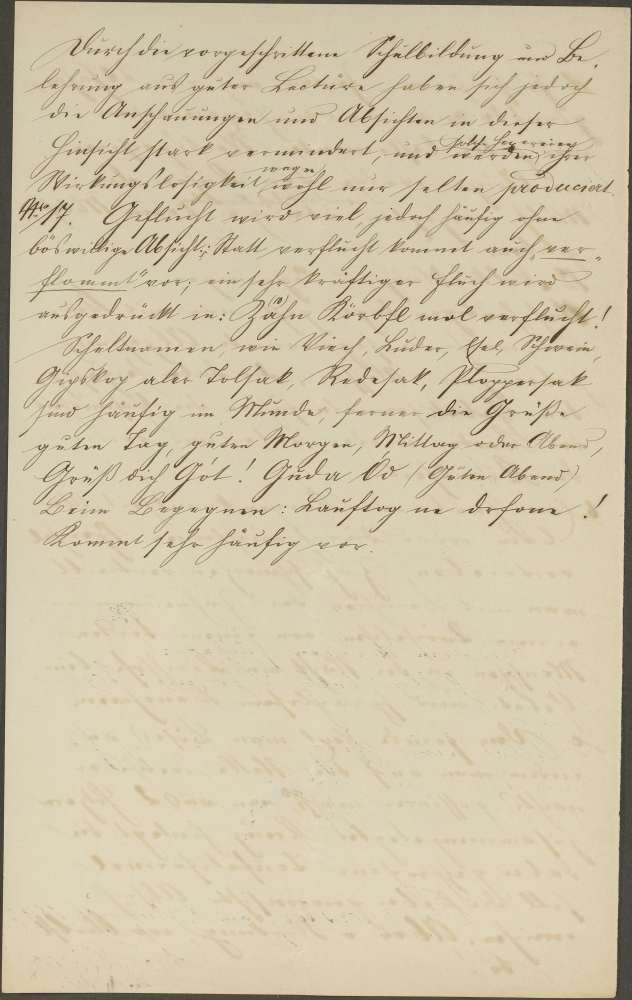 Durch die vorgeschrittene Schulbildung und Be-
lehrung aus guter Lectüre haben sich jedoch
die Anschauungen und Absichten in dieser
Hinsicht stark vermindert, und werden solche Hexereien ihrer
Wirkungslosigkeit wegen wohl nur selten produciert.
Ad 17. Geflucht wird viel, jedoch häufig ohne
böswillige Absicht; Statt verflucht kommt auch "ver-
flammt" vor; ein sehr kräftiger Fluch wird
ausgedrückt in: Zähn Körbfl mol verflucht!
Scheltnamen, wie Viech, Luder, Esel, Schwein,
Gipskop aler Tolsak, Redesak, Ploppersak
sind häufig im Munde, ferner die Grüße
guten Tag, guten Morgen, Mittag oder Abend,
Grüß dich Got! Guda Od (Guten Abend)
Beim Begegnen: Lauftog ne drfone!
Kommt sehr häufig vor.